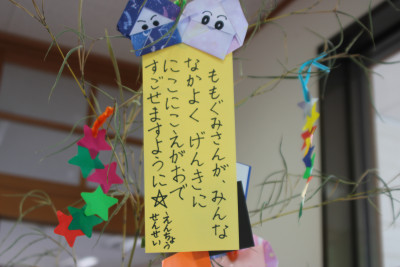 ももぐみさんが みんな
なかよく げんきに
にこにこえがおで
すごせますように☆
えんちょう
せんせい